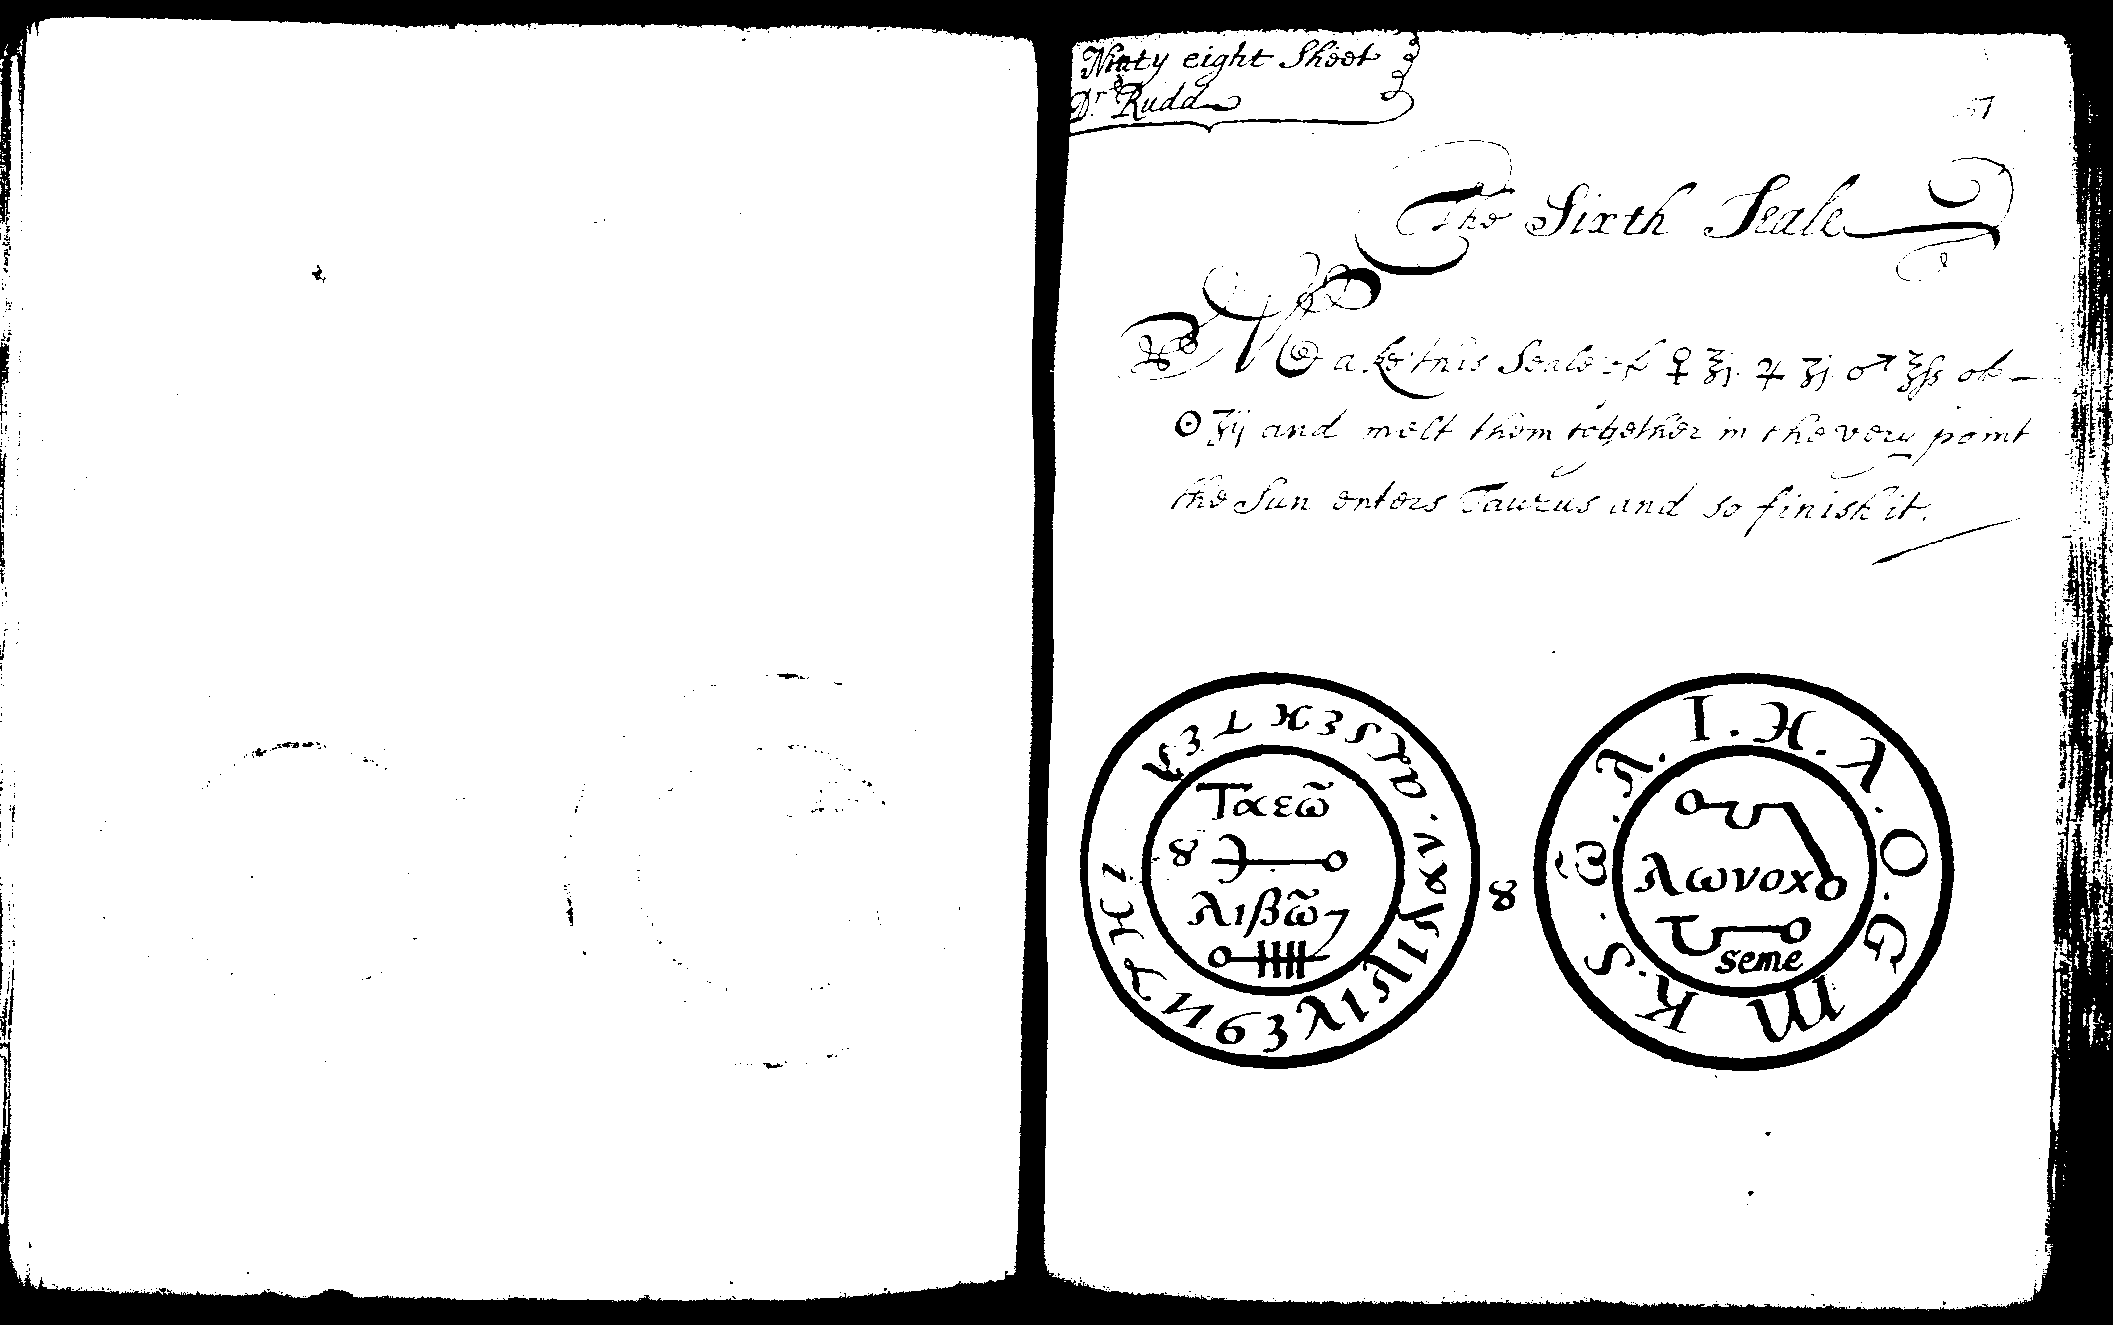 Ninty eight Sheet
Dr. Rudd
The Sixth Seale
Make this Seale of ♀ ℥j. ♃ ℥j ♂ ℥ſs of
☉ ℥ij and melt them together in the very point
the Sun enters Taurus and so finish it.
Ταεω̃
8
λιβω̃
8
I . H . λ . O . G M K . S . ω̃ . λ .
λωνοχ
seme